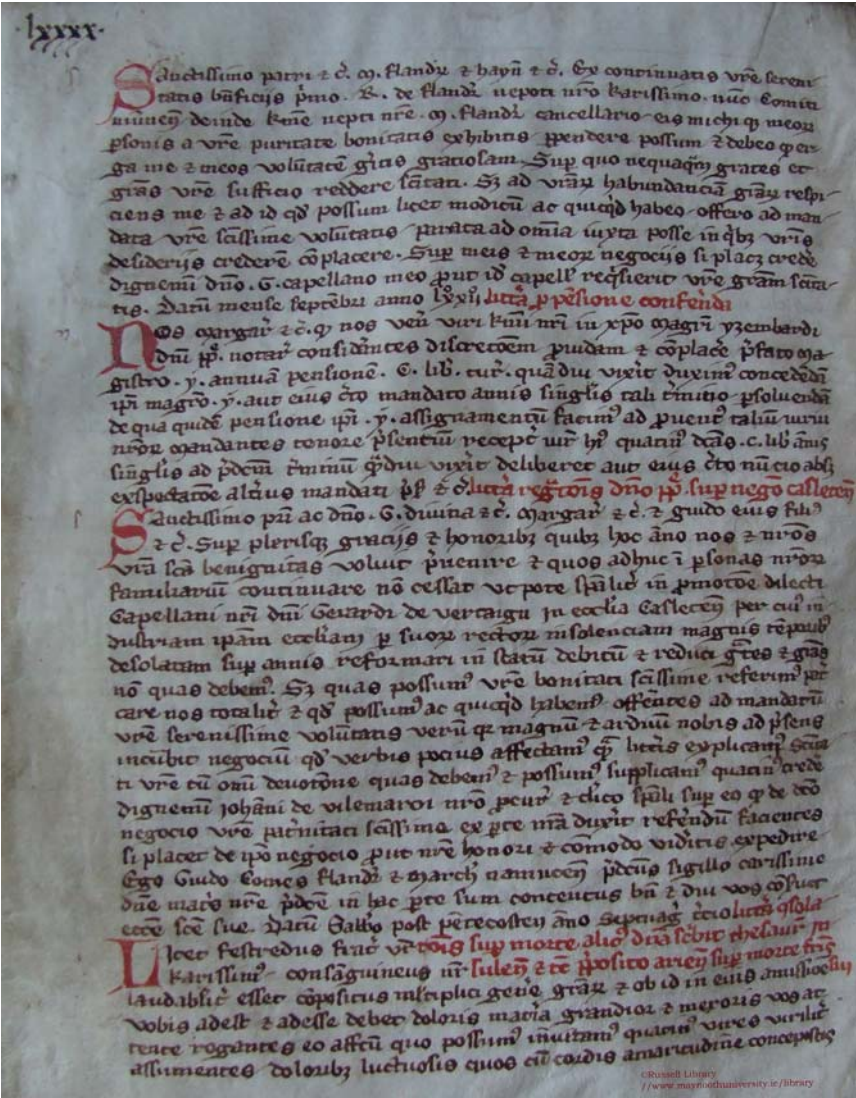 ·lxxxx·
Sanctissimo patri ⁊ c̃. M. Flandr̃ ⁊ hayñ ⁊ c̃. Ex continuatis vr̃e sereni
tatis bñficijs p̃mo. R. de Flandr̃ nepoti nr̃o karissimo. nũc Comiti
deinde kr̃me nepti nr̃e. M. Flandr̃ cancellario eis michi q̃ meoꝝ
ꝑsonis a vr̃e puritate bonitatis exhibitis ꝑpendere possum ⁊ debeo ꝙ er
ga me ⁊ meos volũtatẽ g̃itis gratiosam. Suꝑ quo nequaq̃m grates et
gr̃as vr̃e sufficio reddere sc̃itati. Sꝫ ad vr̃aꝝ habundanciã gr̃aꝝ respi
ciens me ⁊ ad id qd̃ possum licet modicũ ac quicq̃d habeo offero ad man
data vr̃e sc̃issime volũtatis parata ad om̃ia iuxta posse in q̃bꝫ vr̃is
desiderijs crederẽ cõplacere. Suꝑ meis ⁊ meoꝝ negocijs si placꝫ crede
dignemĩ dñо. G. capellano meo ꝓut id̃ capell̃ req̃sierit vr̃e gr̃am sc̃ita
tis. Datũ mense septẽbri anno lxxij litt̃a ꝑ pẽsione confer̃da
Nos Margar̃ ⁊ c̃. ꝙ nos veñ viri kr̃mi nr̃i in xp̃o Magr̃i yzembardi
dñi pp̃. notar̃ considãntes discretõem ꝓuidam ⁊ cõplac̃e p̃fato ma
gistro. y. annuã pensionẽ. C. lib̃. tur̃. quãdiu vixĩt duxim̃ concededã
ip̃i magr̃o. y. aut eius c̃to mandato annis singl̃is tali t̃mino ꝑsoluendã
de qua quidẽ pensione ip̃i. y. assignamentũ facim̃ ad ꝓuent̃ taliũ
nr̃oꝝ mandantes tenore p̃sentiũ recept̃ quatin̾ dc̃as. c. lib̃ ãnis
singl̃is ad p̃dc̃m t̃minũ q̃mdiu vixĩt deliberet aut eius c̃to nũcio absꝫ
exspectatõe alt̃ius mandati ⁊ c̃. litt̃a dño pp̃. suꝑ negõ casleceñ
Sanctissimo pr̃i ac dño. G. diuina ⁊ c̃. Margar̃ ⁊ c̃. ⁊ guido eius fili̾
⁊ c̃. Suꝑ plerisqꝫ gracijs ⁊ honoribꝫ quibꝫ hoc ãno nos ⁊ nr̃os
vr̃a sc̃a benignitas voluit p̃uenire ⁊ quos adhuc ĩ ꝑsonas nr̃oꝝ
familiariũ continuare nõ cessat vtpote sp̃alit̃ in ꝓmotõe dilecti
Capellani nr̃i dñi Gerardi de vertaigñ in eccl̃ia Casleceñ per cui̾ in
dustriam ip̃am eccl̃iam ꝑ suoꝝ rectoꝝ insolenciam magnis tẽporibꝫ
desolatam suꝑ annis reformari in statũ debitũ ⁊ reduci g̃tes ⁊ gr̃as
nõ quas debem̾. Sꝫ quas possum̾ vr̃e bonitati sc̃issime referim̾
nos totalit̃ ⁊ qd̃ possum̾ ac quicq̃d habem̾ offẽntes ad mandatũ
vr̃e serenissime volũtatis verũ qꝛ magnũ ⁊ arduũ nobis ad p̃sens
incũbit negociũ qd̃ verbis pocius affectam̾ q̃ litt̃is explicari sc̃ita
ti vr̃e cũ om̃i deuotõne quas debem̾ ⁊ possum̾ supplicam̾ quatin̾ crede
dignemĩ Johãni de vilemaroi nr̃o ꝓcur̃ ⁊ cl̃ico sp̃ali suꝑ eo ꝙ de dc̃o
negocio vr̃e pat̃nitati sc̃issime ex ꝑte nr̃a duxĩt refer̃dũ facientes
si placet de ip̃o negocio ꝓut nr̃e honori ⁊ cõmodo vidĩtis expedire
Ego Guido Comes Flandr̃ ⁊ March̃ namuceñ p̃dc̃us sigillo carissime
dñe mat̃s nr̃e p̃dc̃e in hac ꝑte sum contentus bñ ⁊ diu vos cõseruet
ecc̃e sc̃e sue. Datũ Sabb̃o post pẽtecosten ãno septuag̃ t̃cio litt̃a ꝯsola
Licet festredus frat̃ vr̃ tõis suꝑ morte thesaur̃
karissim̾ consãguineus nr̃ ⁊ p̃posito arieñ suꝑ morte fr̃is
laudabilit̃ esset cõpositus ml̃tiplici geñe gr̃aꝝ ⁊ ob id in eius amissiõe sui
vobis adest ⁊ adesse debet doloris mat̃ia grandior ⁊ meroris vos at
tente rogantes eo affc̃u quo possum̾ inuitam̾ quatin̾ vires virilit̃
assumentes doloribꝫ luctuosis quos cũ cordis amaritudine concepistis
©Russell Library
//www.maynoothuniversity.ie/library